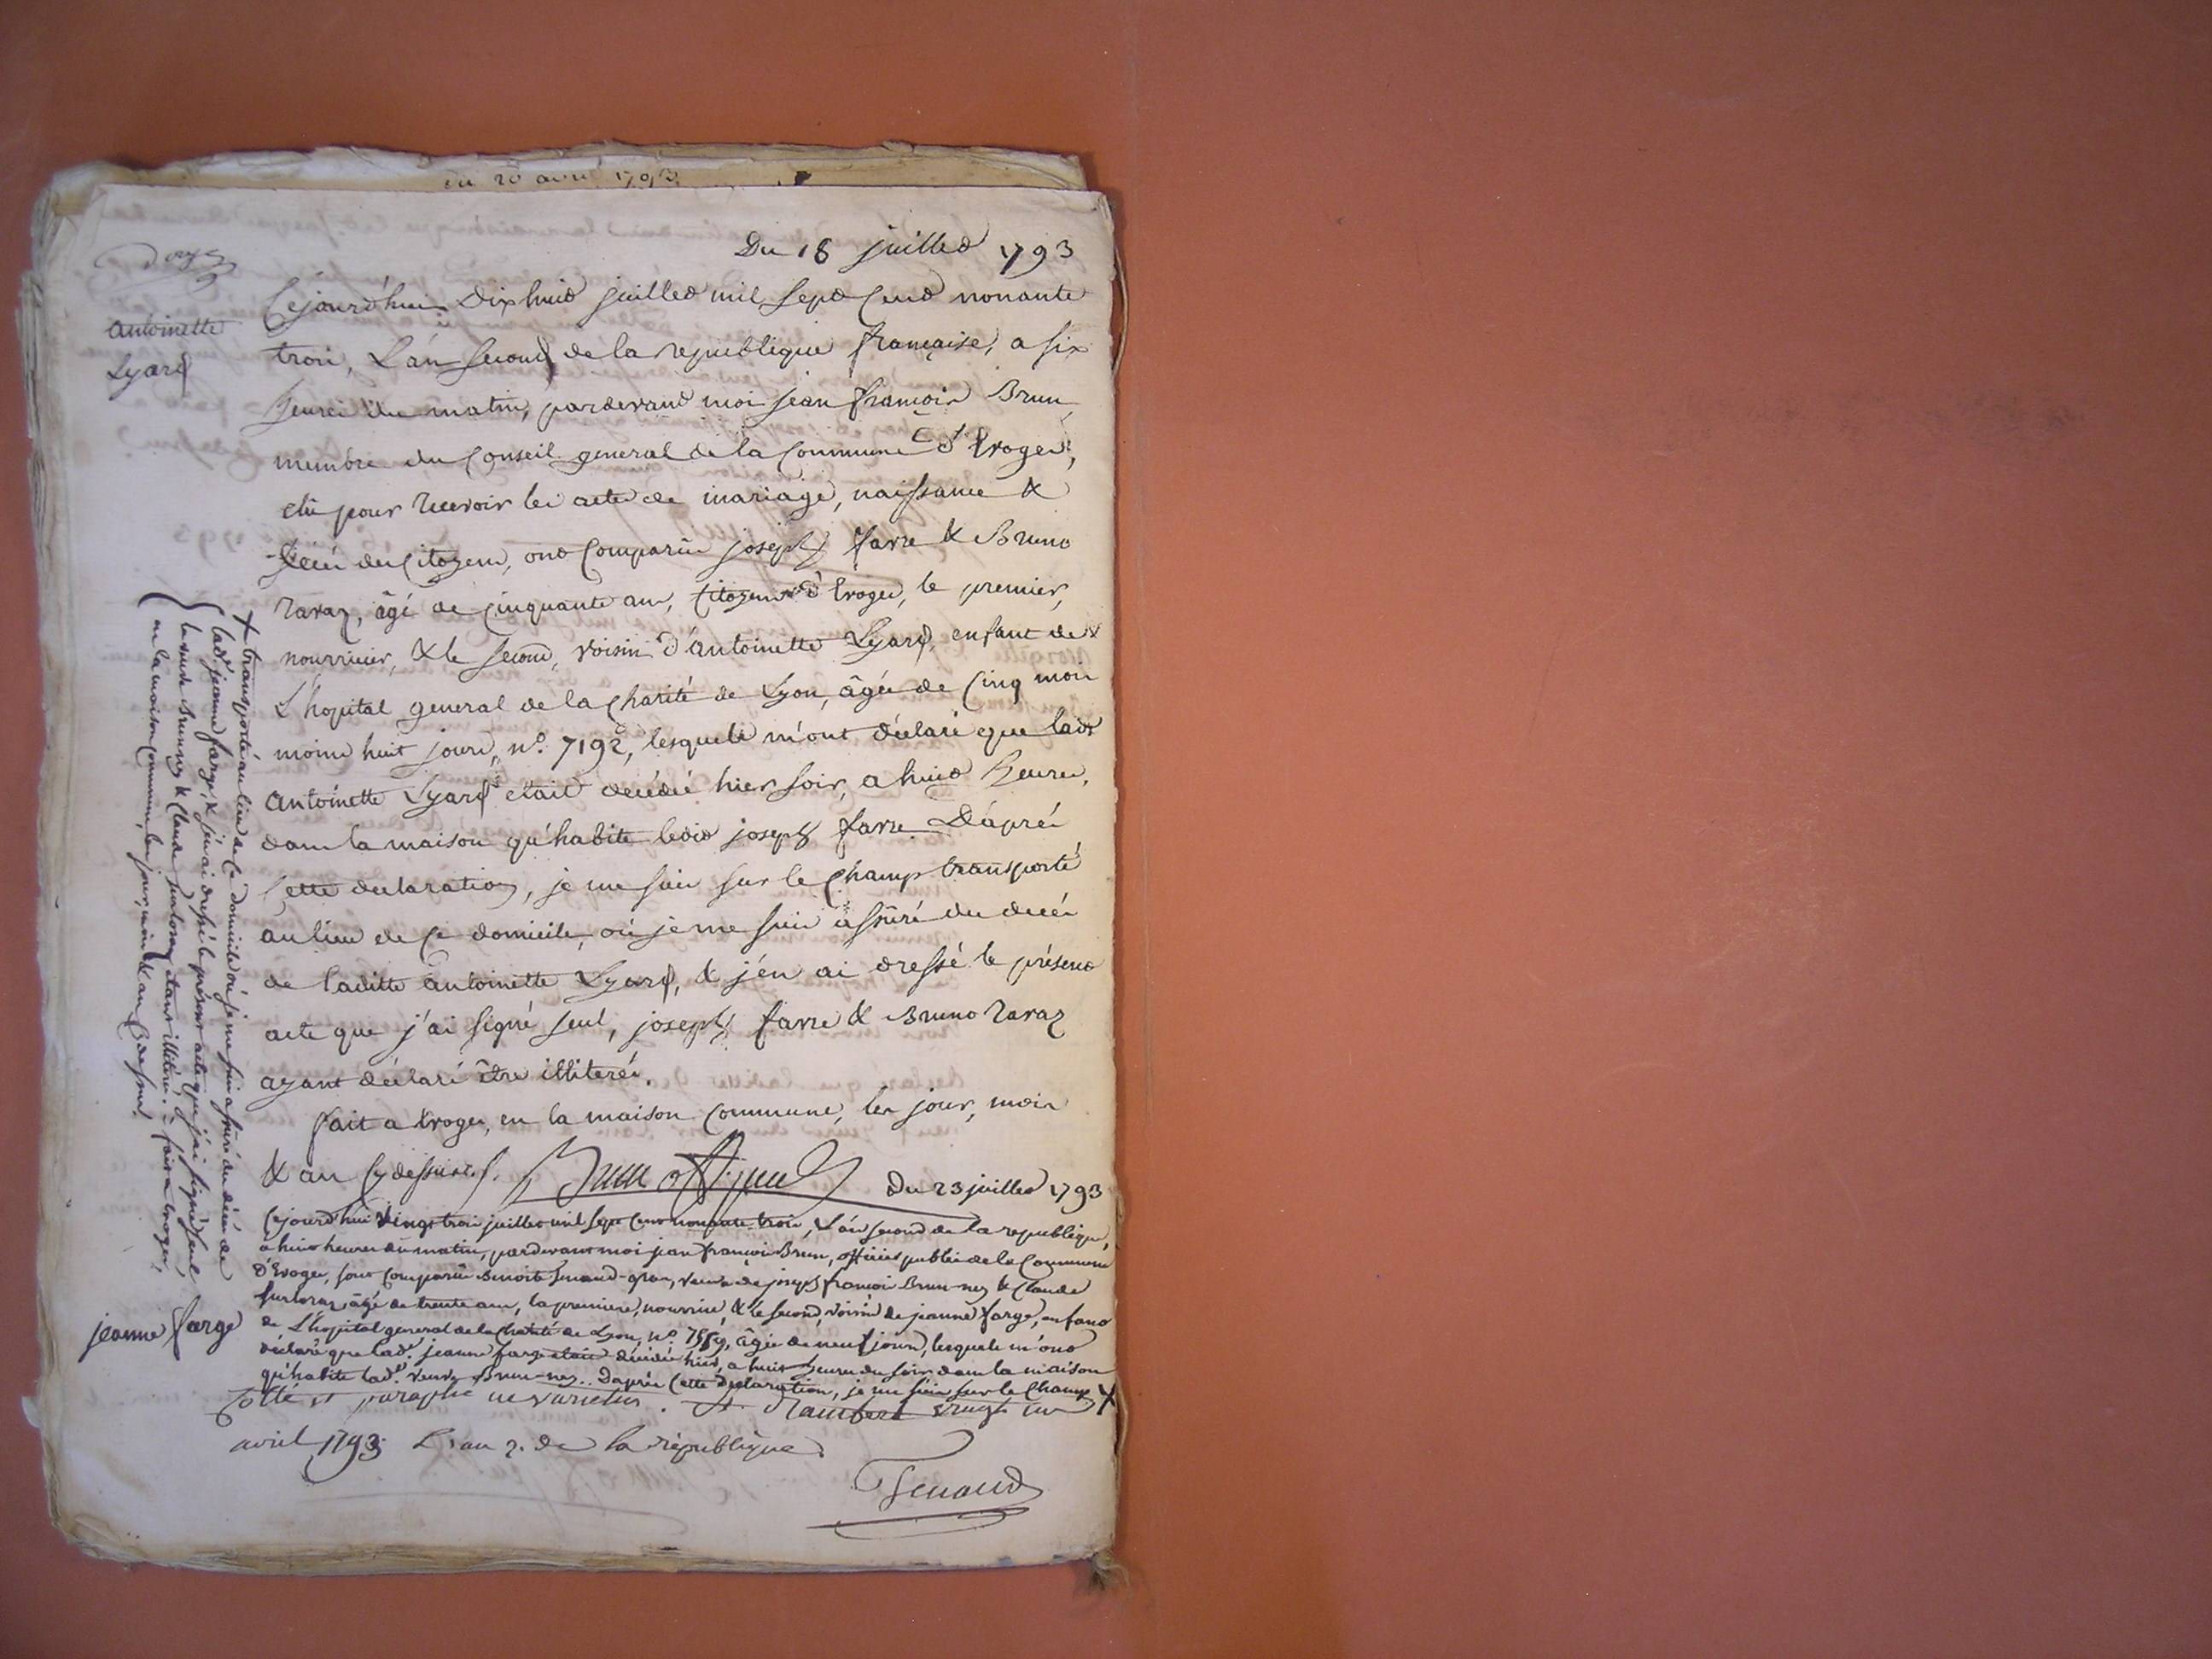 du 28 avril 1793
Du 18 juillet 1793
antoinette
Lyard
Cejourd'hui dix huit juillet mil sept cent nonante
trois, L'an second de la republique française, a six
heures du matin, pardevant moi jean françois Brun
membre du Conseil general de la Commune d'Evoges,
elû pour recevoir les actes de mariage, naissance &
décès des Citoyens, ont Comparûs joseph favre & Bruno
ravaz, âgé de cinquante ans, Citoyens d'Evoges, le premier,
nourricier, & le second, voisin d'antoinette Lyard, enfant de
L'hopital general de la Charité de Lyon, âgée de Cinq mois
moins huit jours, n.° 7192, lesquels m'ont déclaré que lad.
antoinette Lyard etait décédée hier soir, a huit heures,
dans la maison qu'habite ledit joseph favre. D'après
Cette declaration, je me suis sur le Champ transporté
au lieu de Ce domicile, où je me suis assûré du décès
de laditte antoinette Lyard, & j'en ai dressé le présent
acte que j'ai signé seul, joseph favre & Bruno ravaz
ayant déclaré être illiterés.
fait a Evoges, en la maison Commune, les jour, mois
& an Cy dessus. Brun off. public
Du 23 juillet 1793
Cejourd'hui vingt trois juillet mil sept cent nonante trois, L'an second de la republique,
à huit heures du matin, pardevant moi jean françois Brun, officier public de la Commune
d'Evoges, sont Comparûs Benoite veuve de joseph françois Brun-nez & Claude
âgé de trente ans, la premiere, nourrice, & le second, voisin de jeanne farge, enfant
jeanne farge
de L'hopital general de la Charité de Lyon, n.° âgée de neuf jours, lesquels m'ont
déclaré que lad. jeanne farge etait décédée hier, a huit heures du soir dans la maison
qu'habite lad. veuve Brun-nez. D'après Cette declaration, je me suis sur le Champ X
X transporté au lieu de Ce domicile où je me suis assûré du décès de
lad. jeanne farge, & j'en ai dressé le présent acte que j'ai signé seul,
la veuve de Brun nez & Claude etant illiterés. fait a Evoges,
en la maison Commune, les jour, mois & an Cy dessus.
Cotté et paraphé ne varietur. St Rambert vingt un
avril 1793 L'an 2. de la république.